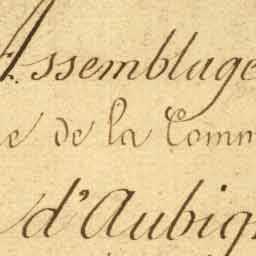 Assemblage
e de la Comm
d'Aubig